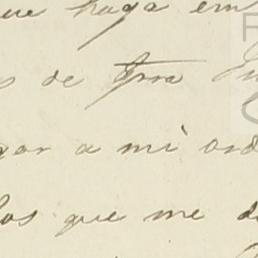 que haga em
s de
gar a mi ord
los que me d